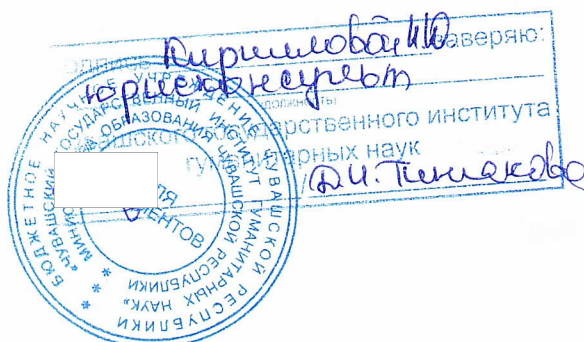 Кирилловой И.Ю. заверяю:
юрисконсульт
должность
государственного института
гуманитарных наук
/Д.И. Тимакова
БЮДЖЕТНОЕ НАУЧНОЕ УЧРЕЖДЕНИЕ ЧУВАШСКОЙ РЕСПУБЛИКИ
«ЧУВАШСКИЙ ГОСУДАРСТВЕННЫЙ ИНСТИТУТ ГУМАНИТАРНЫХ НАУК»
ОБРАЗОВАНИЯ ЧУВАШСКОЙ РЕСПУБЛИКИ